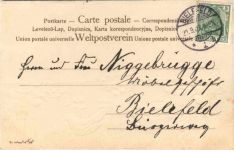 Postkarte — Carte postale — Correspondenzkarte
Levelező-Lap, Dopisnica, Karta korespondencyjna, Dopisnice
Union postale universelle Weltpostverein Unione postale universale
BIELEFELD
Herrn und Frau Niggebrugge
Möbelgeschäft
Bielefeld
Bürgerweg